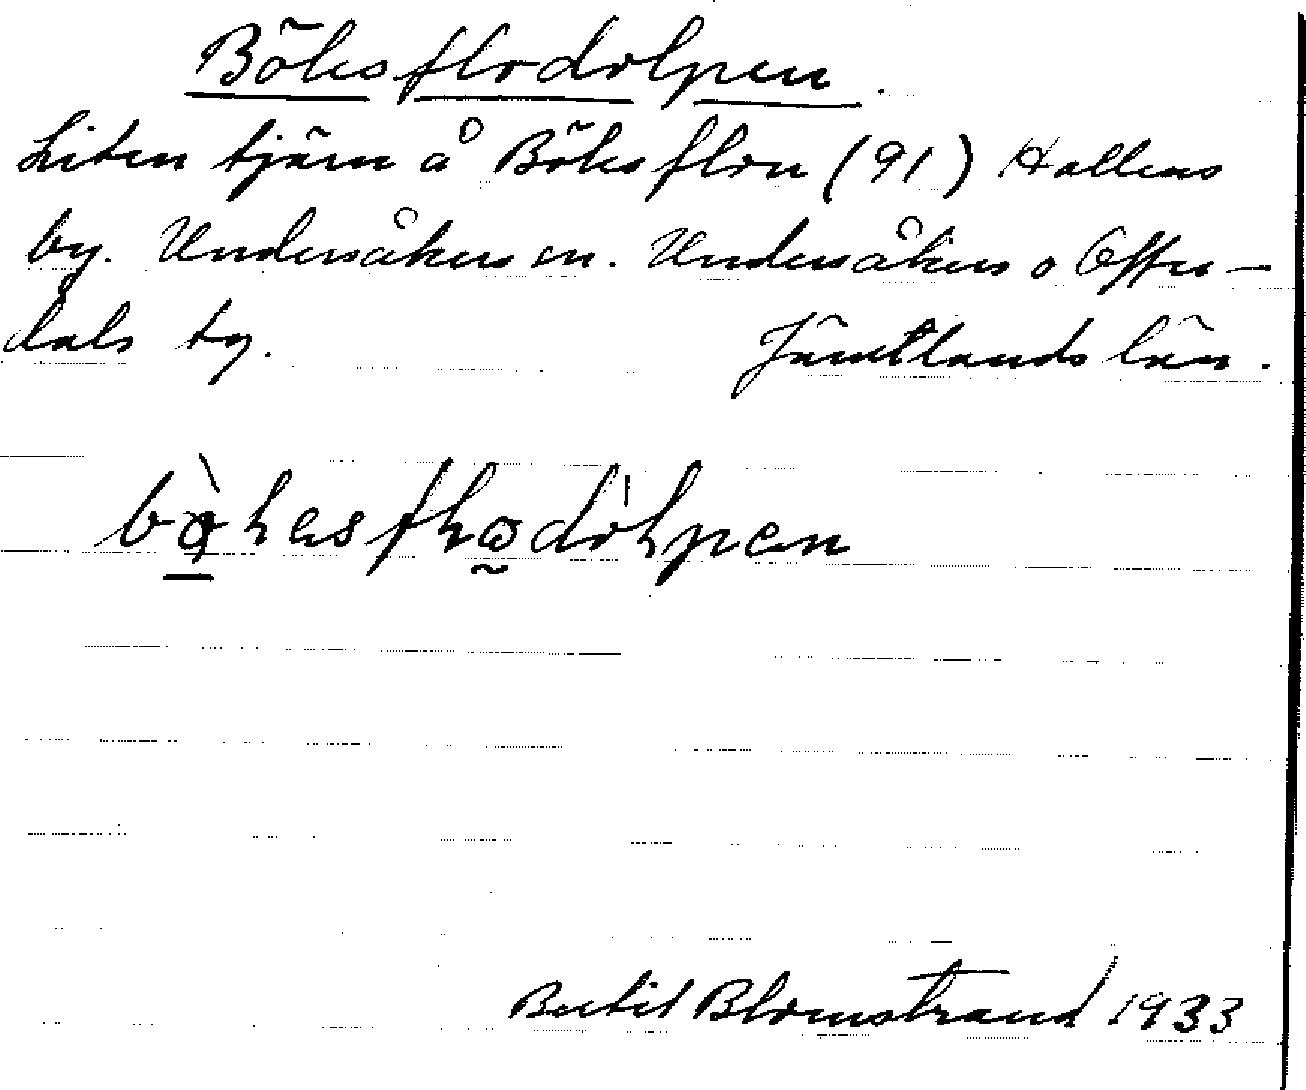 Böles flodolpen.
Liten tjärn å Böles flon (91) Hallens
by. Undersåkers sn. Undersåkers o Offer-
dals tg. Jämtlands län.
Bertil Blomstrand 1933